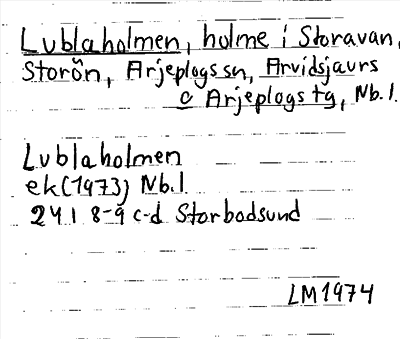 Lublaholmen, holme i Storavan,
Storön, Arjeplogs sn, Arvidsjaurs
o Arjeplogs tg, Nb.l.
Lublaholmen
ek(1973) Nb.l.
24 I 8-9 c-d Storbodsund
LM1974